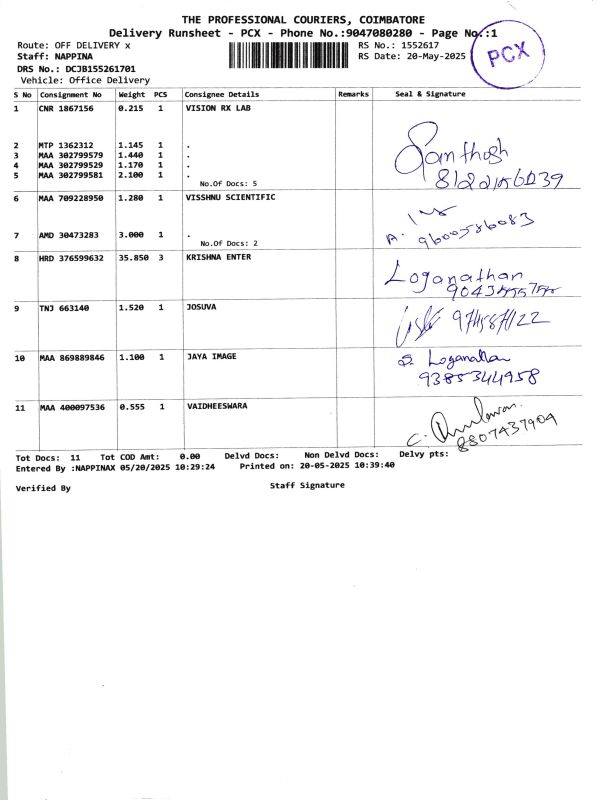 THE PROFESSIONAL COURIERS, COIMBATORE
Delivery Runsheet - PCX - Phone No.:9047080280 - Page No.:1
PCX
Route: OFF DELIVERY x
RS No.: 1552617
Staff: NAPPINA
RS Date: 20-May-2025
DRS No.: DCJB155261701
Vehicle: Office Delivery
S No Consignment No Weight PCS Consignee Details Remarks Seal & Signature
1 CNR 1867156 0.215 1 VISION RX LAB
2 MTP 1362312 1.145 1 .
3 MAA 302799579 1.440 1 .
4 MAA 302799529 1.170 1 .
5 MAA 302799581 2.100 1 .
No.Of Docs: 5
Santhosh
6 MAA 709228950 1.280 1 VISSHNU SCIENTIFIC
7 AMD 30473283 3.000 1 .
No.Of Docs: 2
A.
9600586083
8 HRD 376599632 35.850 3 KRISHNA ENTER
Loganathan
9 TNJ 663140 1.520 1 JOSUVA
10 MAA 869889846 1.100 1 JAYA IMAGE
S. Loganathan
9385344958
11 MAA 400097536 0.555 1 VAIDHEESWARA
C.
8807437904
Tot Docs: 11 Tot COD Amt: 0.00 Delvd Docs: Non Delvd Docs: Delvy pts:
Entered By :NAPPINAX 05/20/2025 10:29:24 Printed on: 20-05-2025 10:39:40
Verified By
Staff Signature